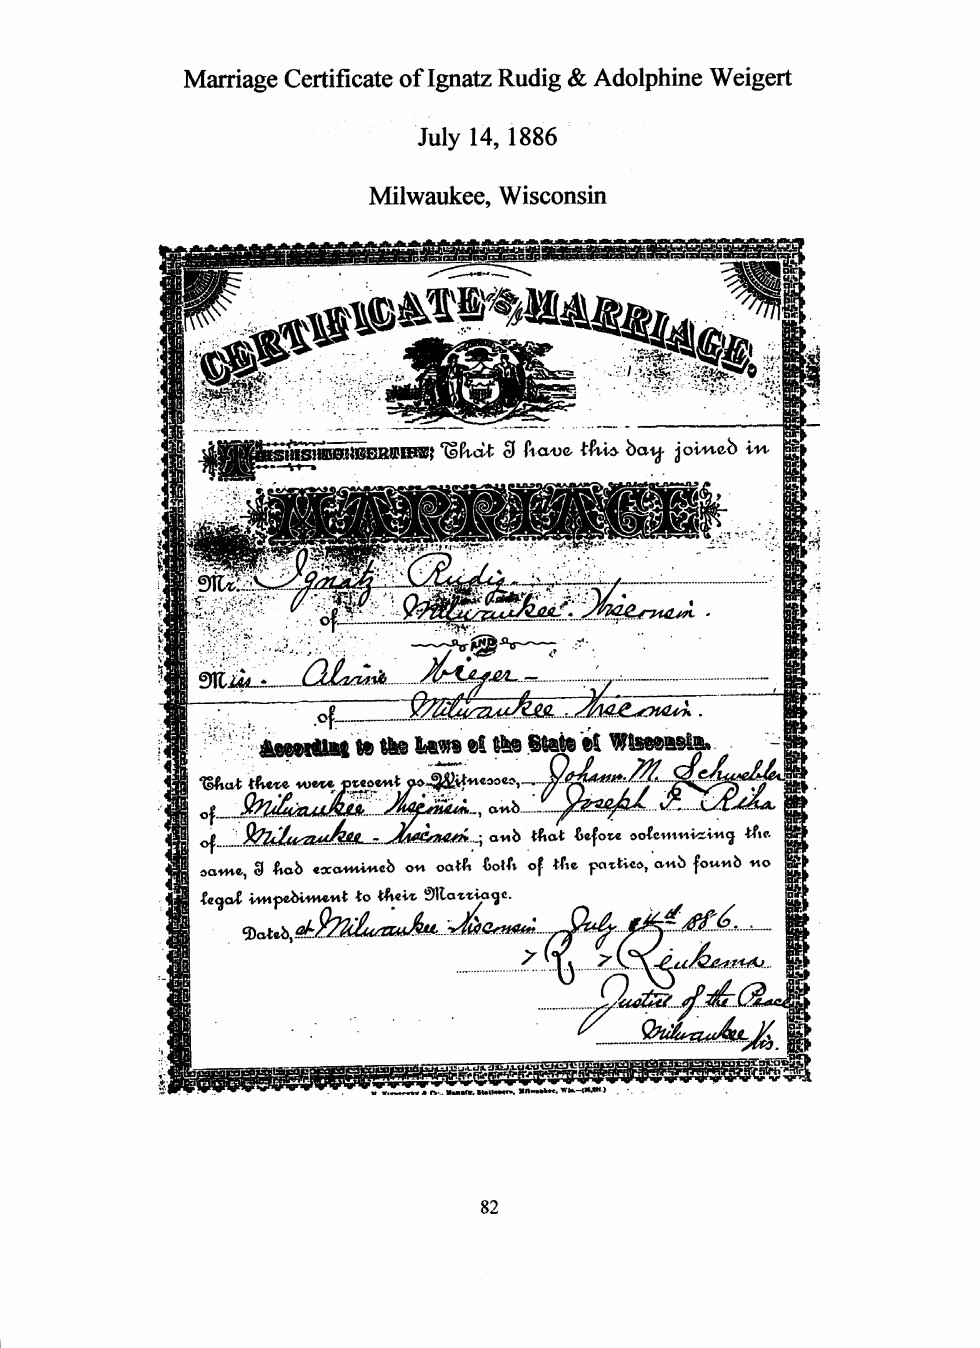 Marriage Certificate of Ignatz Rudig & Adolphine Weigert
July 14, 1886
Milwaukee, Wisconsin
CERTIFICATE OF MARRIAGE.
THIS IS TO CERTIFY; That I have this day joined in
MARRIAGE
Mr. Ignatz Rudig
of Milwaukee. Wisconsin.
AND
Miss. Alvine Wieger
of Milwaukee. Wisconsin.
According to the Laws of the State of Wisconsin.
That there were present as Witnesses, Johann. M. Schwebler
of Milwaukee Wisconsin, and Joseph F. Riha
of Milwaukee - Wisconsin; and that before solemnizing the
same, I had examined on oath both of the parties, and found no
legal impediment to their Marriage.
Dated, at Milwaukee Wisconsin July 886.
Reukema
Justice of the Peace
Milwaukee Wis.
& Co., Stationers, Milwaukee, Wis.
82